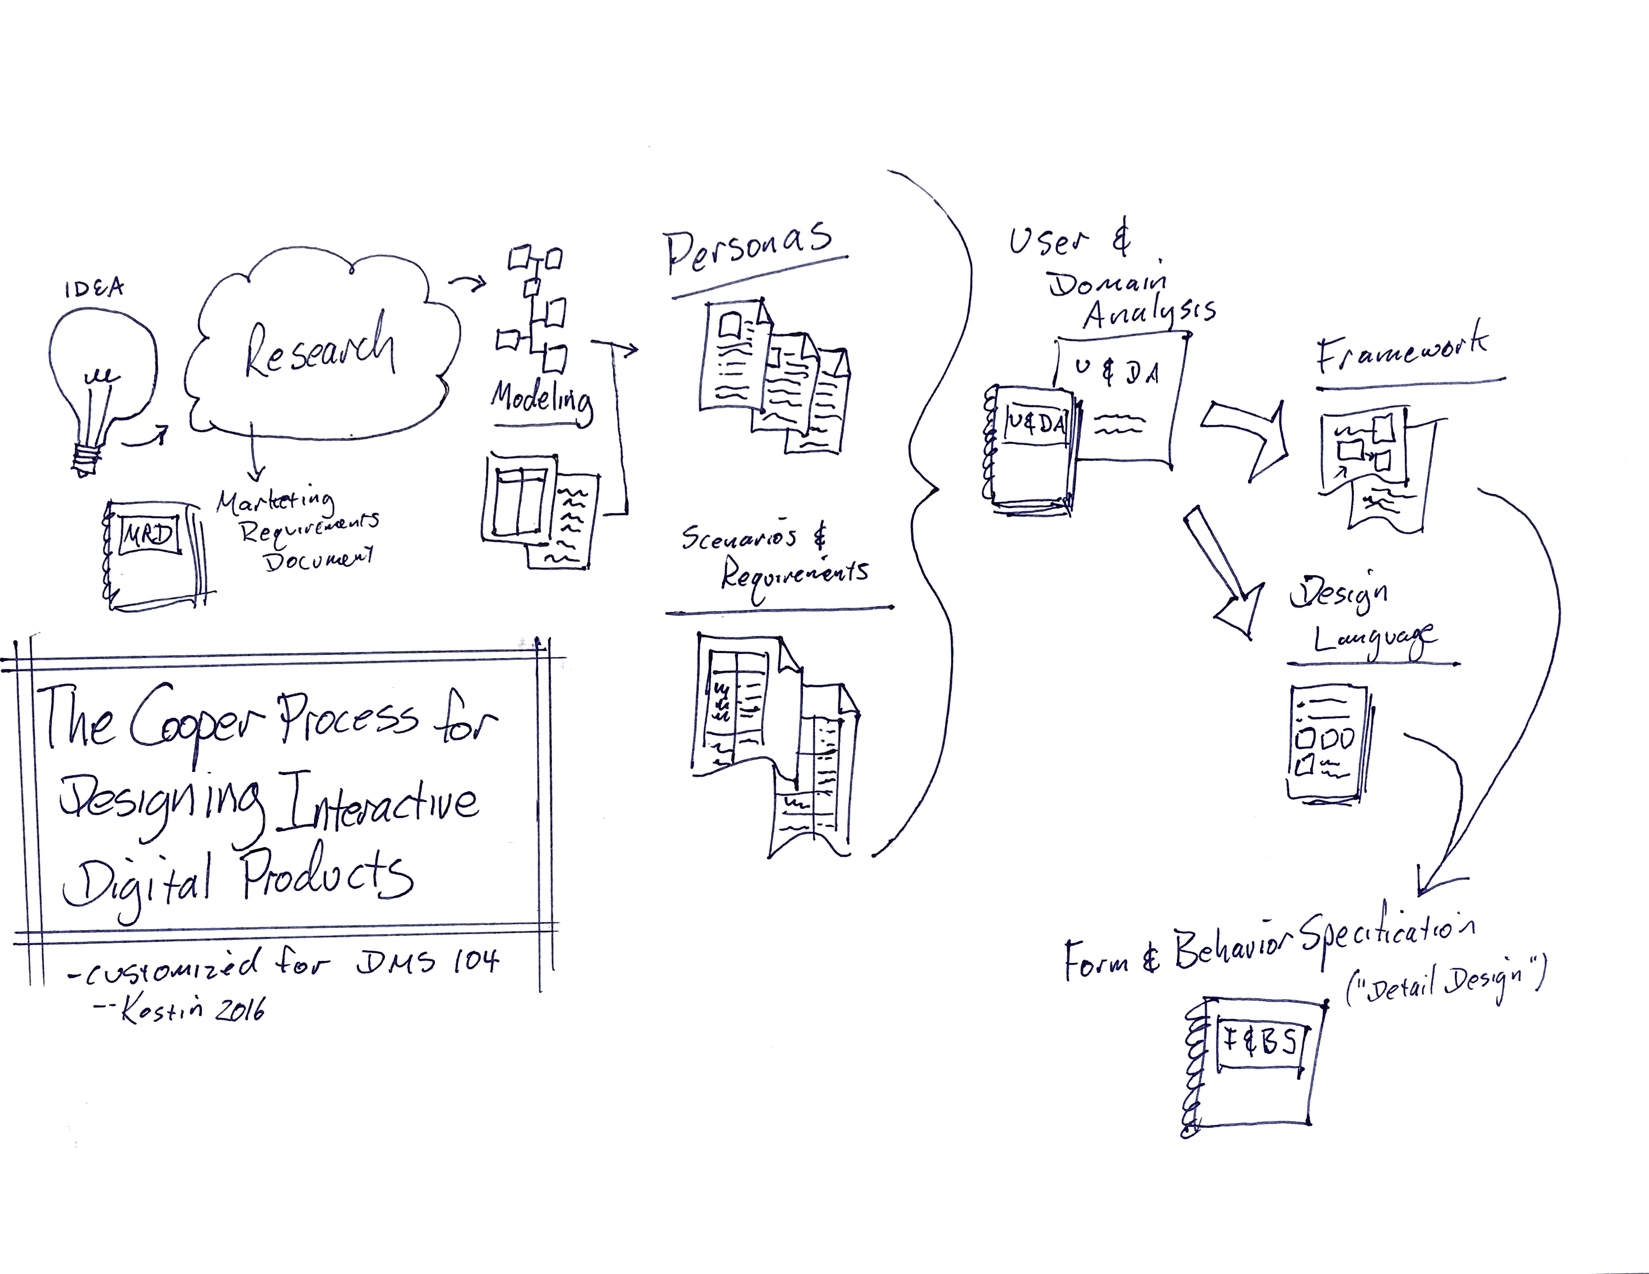 IDEA
Research
Marketing
Requirements
Document
MRD
Modeling
Personas
Scenarios &
Requirements
User &
Domain
Analysis
U & DA
U&DA
Framework
Design
Language
Form & Behavior Specification
("Detail Design")
F&BS
The Cooper Process for
Designing Interactive
Digital Products
-customized for DMS 104
--Kostin 2016